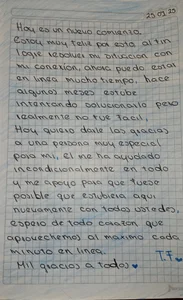 25 09 25
Hoy es un nuevo comienzo
Estoy muy feliz por esto al fin
logré resolver mi situación con
mi conexión, ahora puedo estar
en linea mucho tiempo, hace
algunos meses estube
intentando solucionarlo pero
realmente no fue facil,
Hoy quiero darle las gracias
a una persona muy especial
para mi, el me ha ayudado
incondicionalmente en todo
y me apoyo para que fuese
posible que estubiera aquí
nuevamente con todos ustedes,
espero de todo corazon que
aprovechemos al maximo cada
minuto en linea.
T.F ♥
Mil gracias a todos ♥